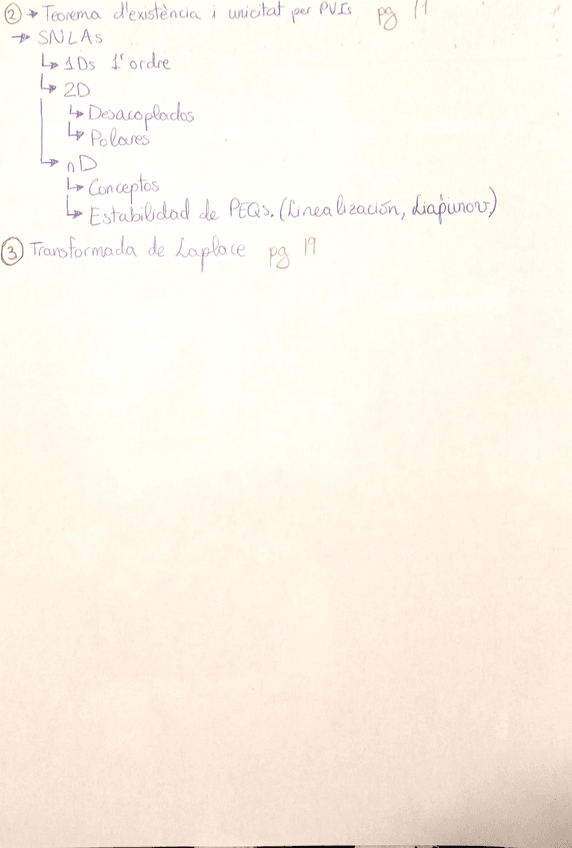 ② → Teorema d'existència i unicitat per PVIs pg 11
→ SNLAs
↳ 1Ds 1ʳ ordre
↳ 2D
↳ Desacoplados
↳ Polares
↳ nD
↳ Conceptos
↳ Estabilidad de PEQs. (Linealización, Liápunov)
③ Transformada de Laplace pg 19